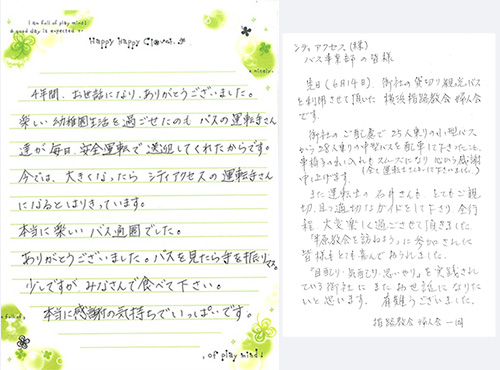 I am full of play mind!
a good day is expected
Happy Happy Clover
4年間、お世話になり、ありがとうございました。
楽しい幼稚園生活を過ごせたのも バスの運転手さん
達が毎日、安全運転で送迎してくれたからです。
今では、大きくなったら シティアクセスの運転手さん
になるとはりきっています。
本当に楽しい バス通園でした。
ありがとうございました。バスを見たら手を振りマス。
少しですが みなさんで食べて下さい。
本当に感謝の気持ちでいっぱいです。
of play mind!
シティアクセス(株)
バス事業部の皆様
先日(6月14日)、御社の貸切り観光バス
を利用させて頂いた 横浜指路教会 婦人会
です。
御社のご配慮で 25人乗りの小型バス
から28人乗りの中型バスを配車して下さったこと、
車椅子の出し入れもスムーズになり 心から感謝
申し上げます。
また運転士の石井さんも とてもご親
切、且つ適切なガイドをして下さり 全行
程、大変楽しく過ごさせて頂きました。
に参加された
皆様もとても喜んでおられました。
「目配り・気配り・思いやり」を実践され
ている御社に またお世話になりた
いと思います。有難うございました。
指路教会 婦人会 一同